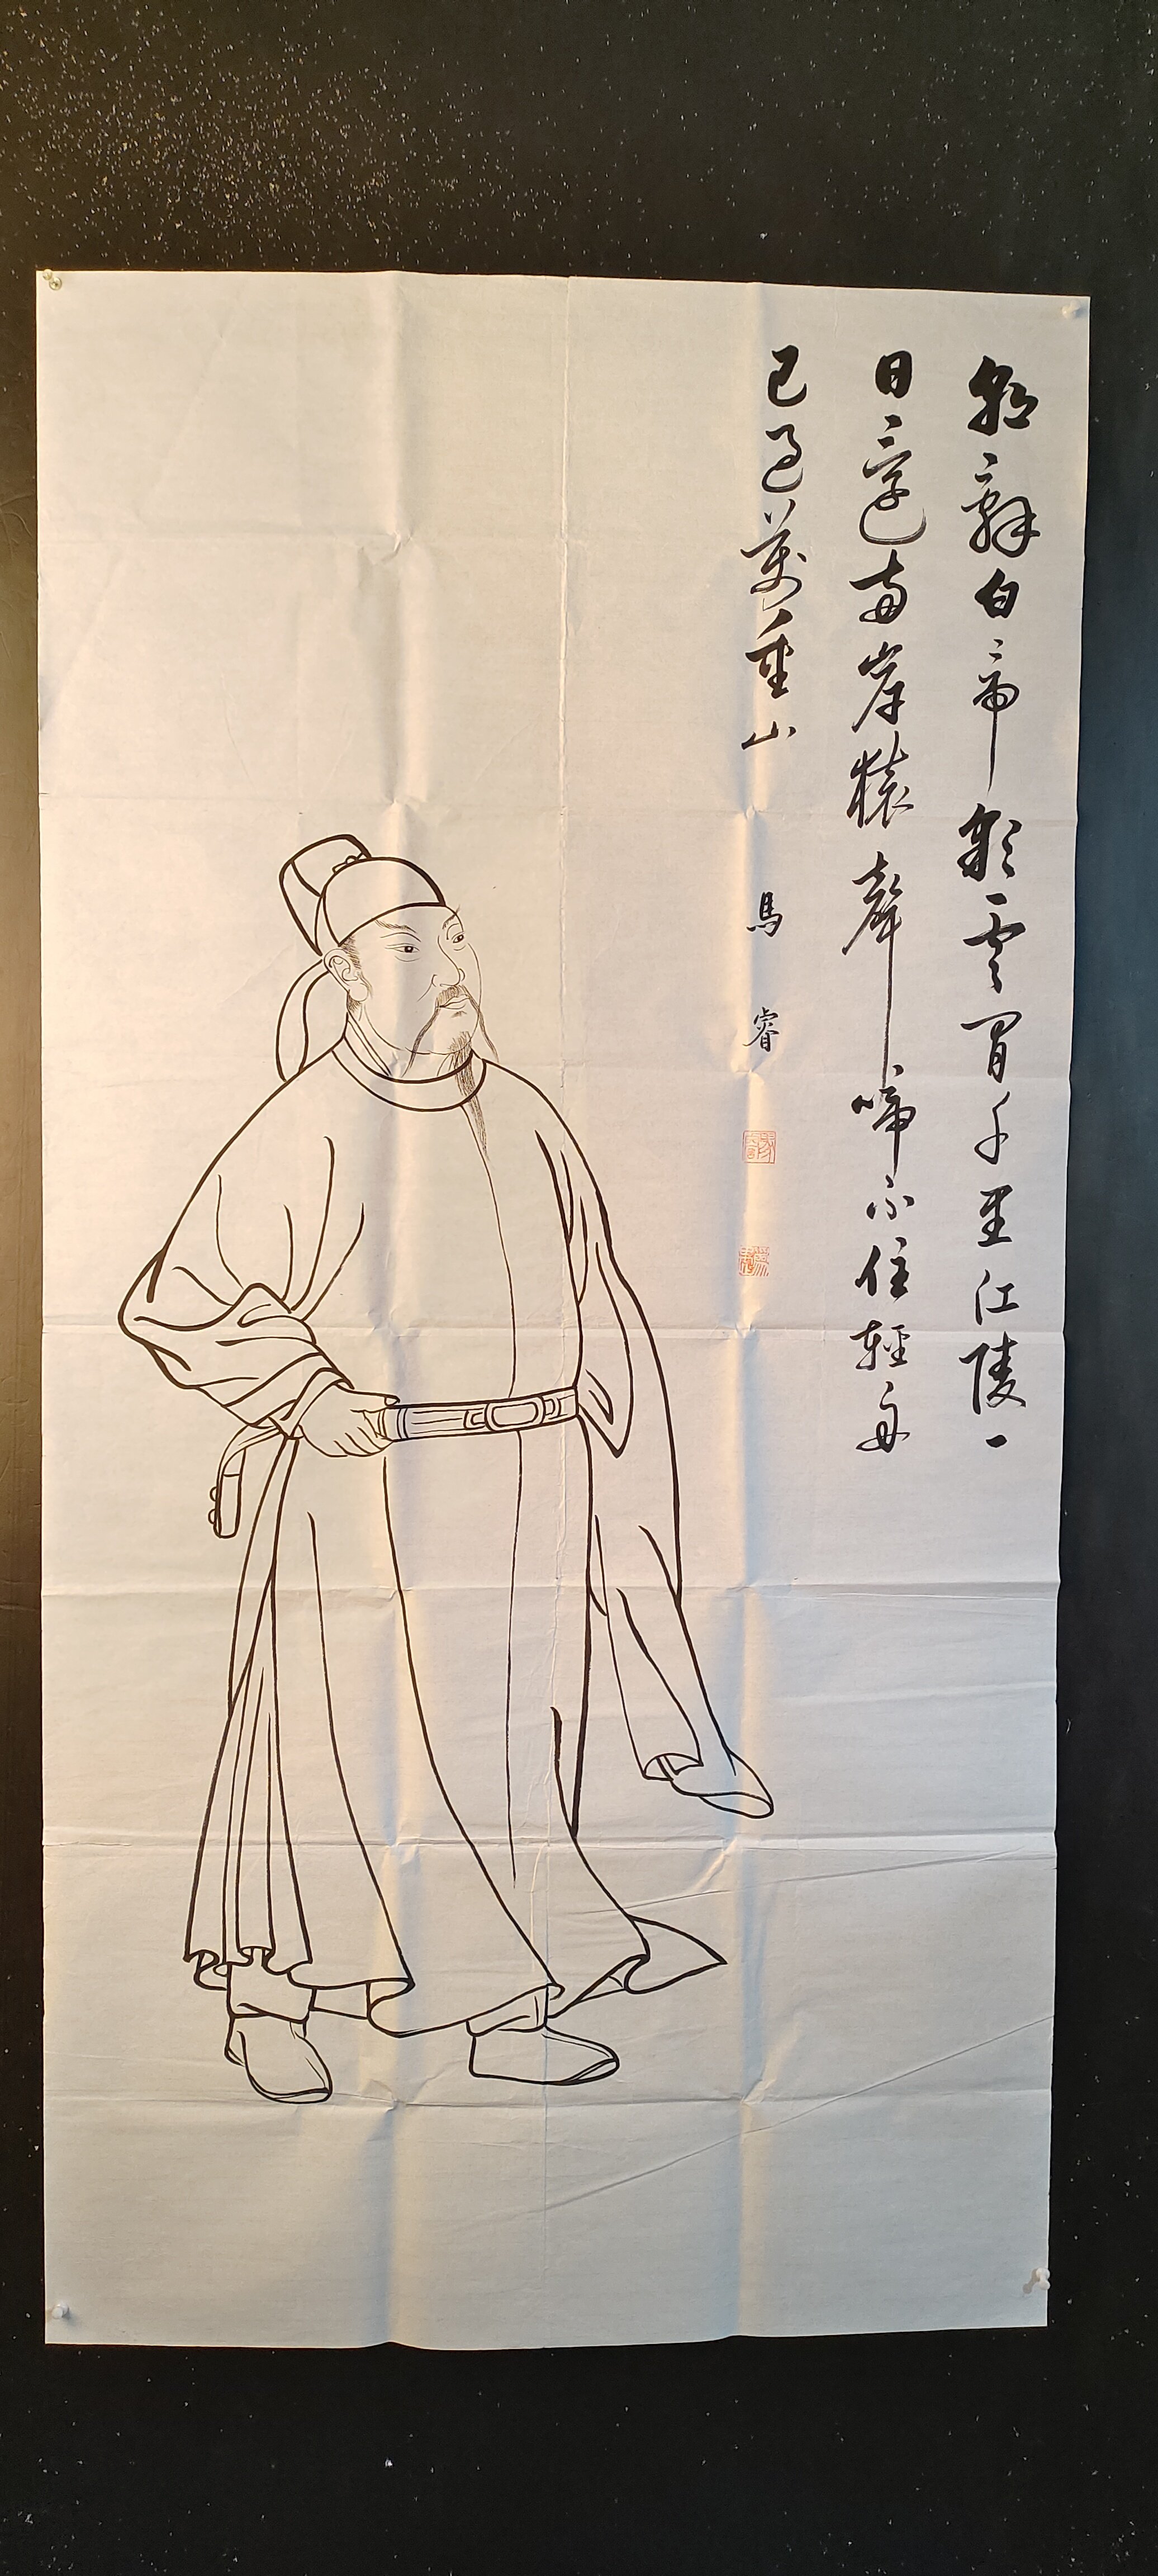 朝辭白帝彩雲間千里江陵一
日還兩岸猿聲啼不住輕舟
已過萬重山
馬睿